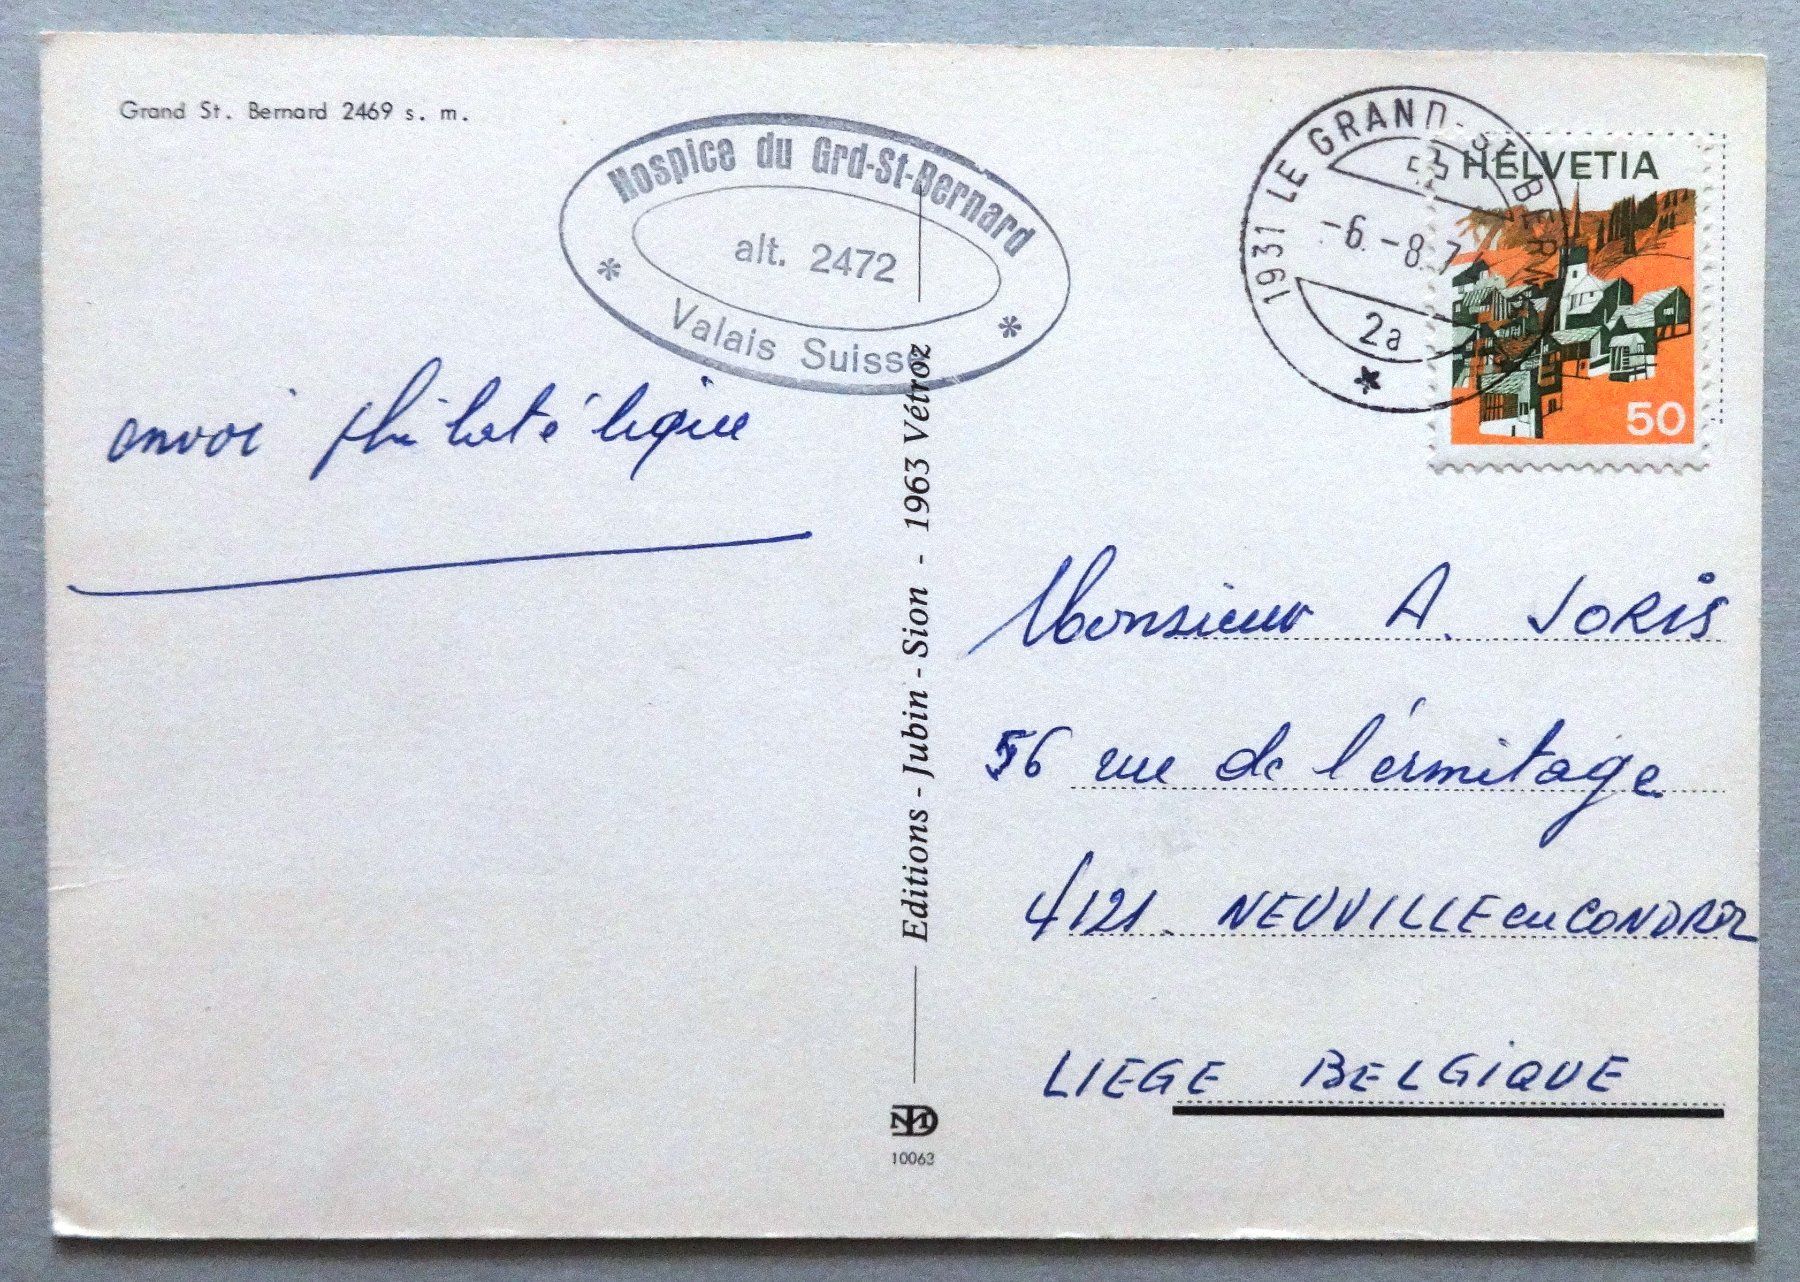 Grand St. Bernard 2469 s. m.
Hospice du Grd-St-Bernard
alt. 2472
Valais Suisse
1931 LE GRAND-ST-BERNARD
-6.-8.7
2a
HELVETIA
50
envoi philatélique
Editions - Jubin - Sion - 1963 Vétroz
Monsieur A. JORIS
56 rue de l'ermitage
4121 NEUVILLE en CONDROZ
LIEGE BELGIQUE
10063